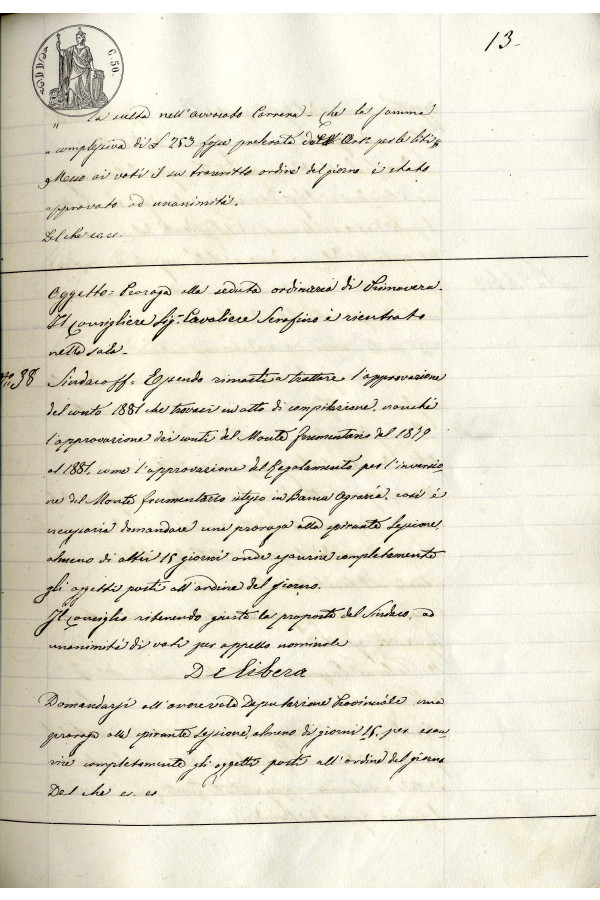 13-
C. 50.
" la scelta nell'avvocato Carrera - che la somma
" complessiva di £ 253 fosse prelevata dall'Art. per le liti "
Messo ai voti il su trascritto ordine del giorno è stato
approvato ad unanimità.
Del che ec. ec.
Oggetto = Proroga alla seduta ordinaria di Primavera.
Il Consigliere Sig. Cavaliere Serafino è rientrato
nella sala.
No. 38
Sindaco ff. Essendo rimasti a trattare l'approvazione
del conto 1881 che trovasi in atto di compilazione, nonché
l'approvazione dei conti del Monte frumentario del 1879
al 1881, come l'approvazione del Regolamento per l'inversio
ne del Monte frumentario istesso in Banca Agraria, così è
necessario domandare una proroga alla spirante Sessione,
almeno di altri 15 giorni onde esaurire completamente
gli oggetti posti all'ordine del giorno.
Il Consiglio ritenendo giusta la proposta del Sindaco, ad
unanimità di voti per appello nominale
Delibera
Domandarsi all'onorevole Deputazione Provinciale una
proroga alla spirante Sessione, almeno di giorni 15, per esau
rire completamente gli oggetti posti all'ordine del giorno
Del che ec. ec